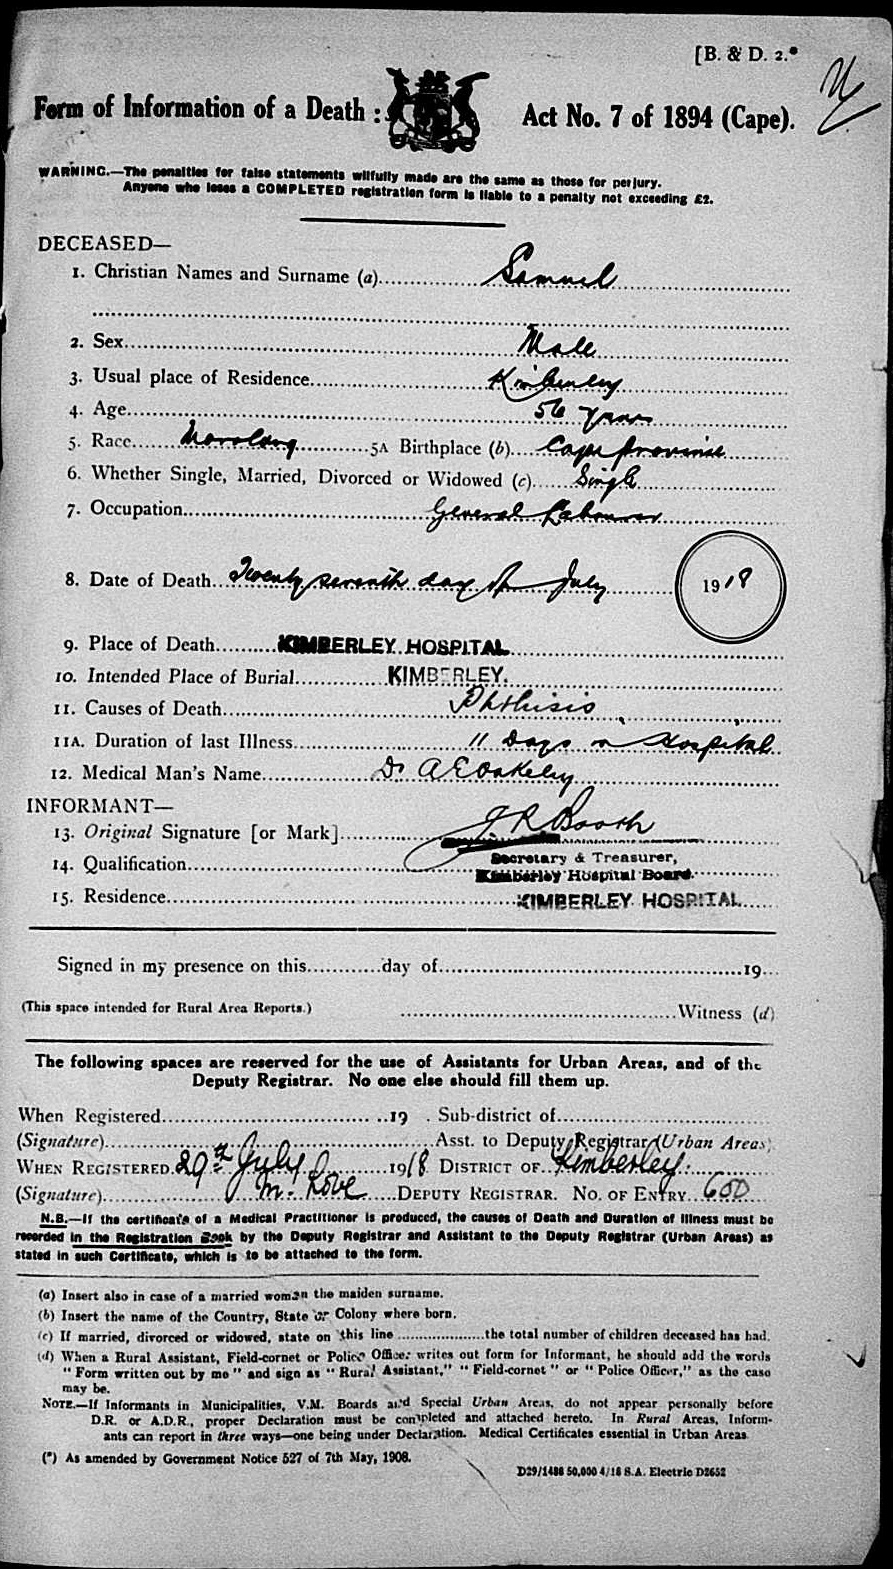 [B. & D. 2.*
Form of Information of a Death : Act No. 7 of 1894 (Cape).
WARNING.—The penalties for false statements wilfully made are the same as those for perjury.
Anyone who loses a COMPLETED registration form is liable to a penalty not exceeding £2.
DECEASED—
1. Christian Names and Surname (a) Samuel
2. Sex Male
3. Usual place of Residence Kimberley
4. Age 56 years
5. Race Morolong 5A Birthplace (b) Cape Province
6. Whether Single, Married, Divorced or Widowed (c) Single
7. Occupation General Labourer
8. Date of Death Twenty seventh day of July 1918
9. Place of Death KIMBERLEY HOSPITAL
10. Intended Place of Burial KIMBERLEY.
11. Causes of Death Phthisis
11A. Duration of last Illness 11 Days in Hospital
12. Medical Man's Name Dr A E Oakeley
INFORMANT—
13. Original Signature [or Mark] J R Booth
14. Qualification Secretary & Treasurer,
Kimberley Hospital Board.
15. Residence KIMBERLEY HOSPITAL
Signed in my presence on this day of 19
(This space intended for Rural Area Reports.) Witness (d)
The following spaces are reserved for the use of Assistants for Urban Areas, and of the
Deputy Registrar. No one else should fill them up.
When Registered 19 . Sub-district of
(Signature) Asst. to Deputy Registrar (Urban Areas)
WHEN REGISTERED 29th July 1918 DISTRICT OF Kimberley.
(Signature) M. Love DEPUTY REGISTRAR. NO. OF ENTRY 600
N.B.—If the certificate of a Medical Practitioner is produced, the causes of Death and Duration of Illness must be
recorded in the Registration Book by the Deputy Registrar and Assistant to the Deputy Registrar (Urban Areas) as
stated in such Certificate, which is to be attached to the form.
(a) Insert also in case of a married woman the maiden surname.
(b) Insert the name of the Country, State or Colony where born.
(c) If married, divorced or widowed, state on this line the total number of children deceased has had.
(d) When a Rural Assistant, Field-cornet or Police Officer writes out form for Informant, he should add the words
" Form written out by me " and sign as " Rural Assistant," " Field-cornet " or " Police Officer," as the case
may be.
NOTE.—If Informants in Municipalities, V.M. Boards and Special Urban Areas, do not appear personally before
D.R. or A.D.R., proper Declaration must be completed and attached hereto. In Rural Areas, Inform-
ants can report in three ways—one being under Declaration. Medical Certificates essential in Urban Areas
(*) As amended by Government Notice 527 of 7th May, 1908.
D29/1488 50,000 4/18 S.A. Electric D2652